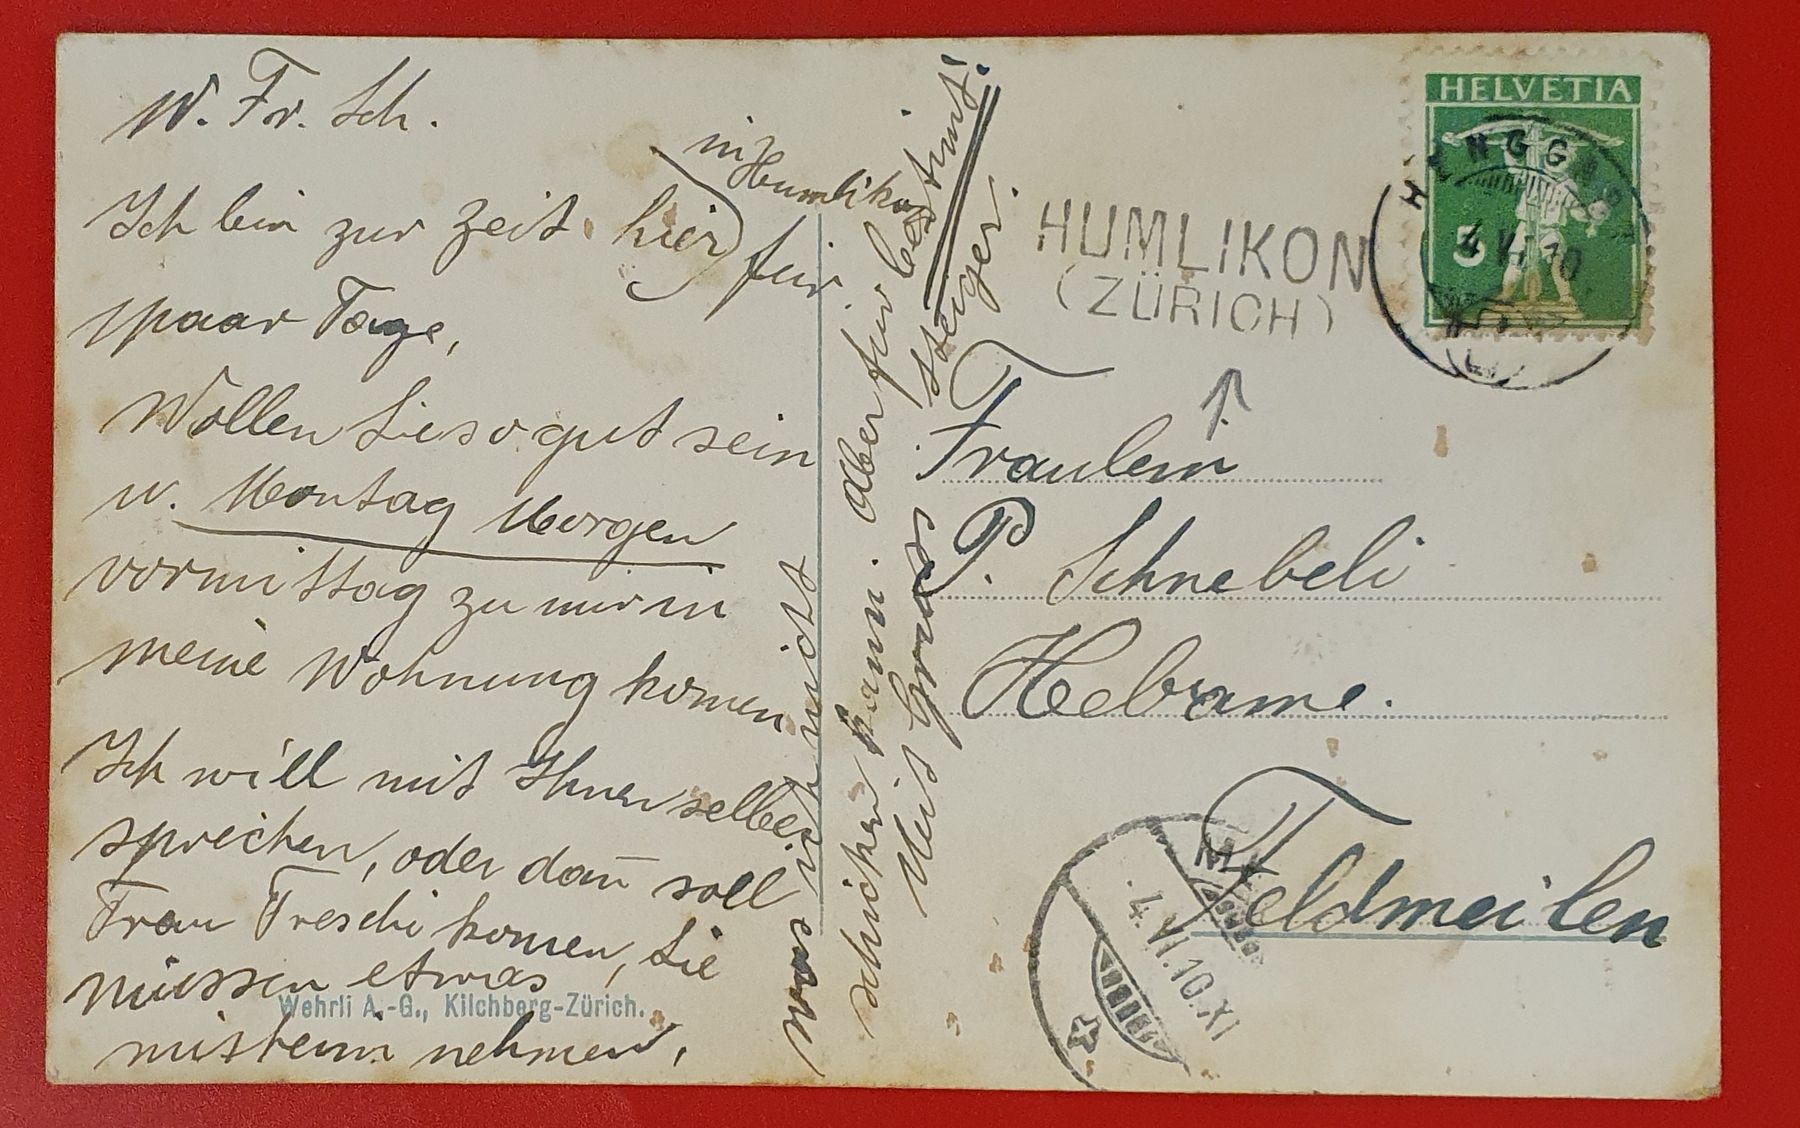 W. Fr. Sch.
in Humlikon
Ich bin zur Zeit hier für
paar Tage,
Wollen Sie so gut sein
u. Montag Morgen
vormittag zu mir in
meine Wohnung komen
Ich will mit Ihnen selber
sprechen, oder dan̄ soll
Frau Treschi komen, Sie
müssen etwas
mit heim nehmen,
was ich nicht
schicken kann. Aber für bestimt!
Mit Gruss Steiger.
HELVETIA
5
4 VI 10
HUMLIKON
(ZÜRICH)
Fraulein
P. Schnebeli
Hebame.
Feldmeilen
4.VI.10.XI
Wehrli A.-G., Kilchberg-Zürich.